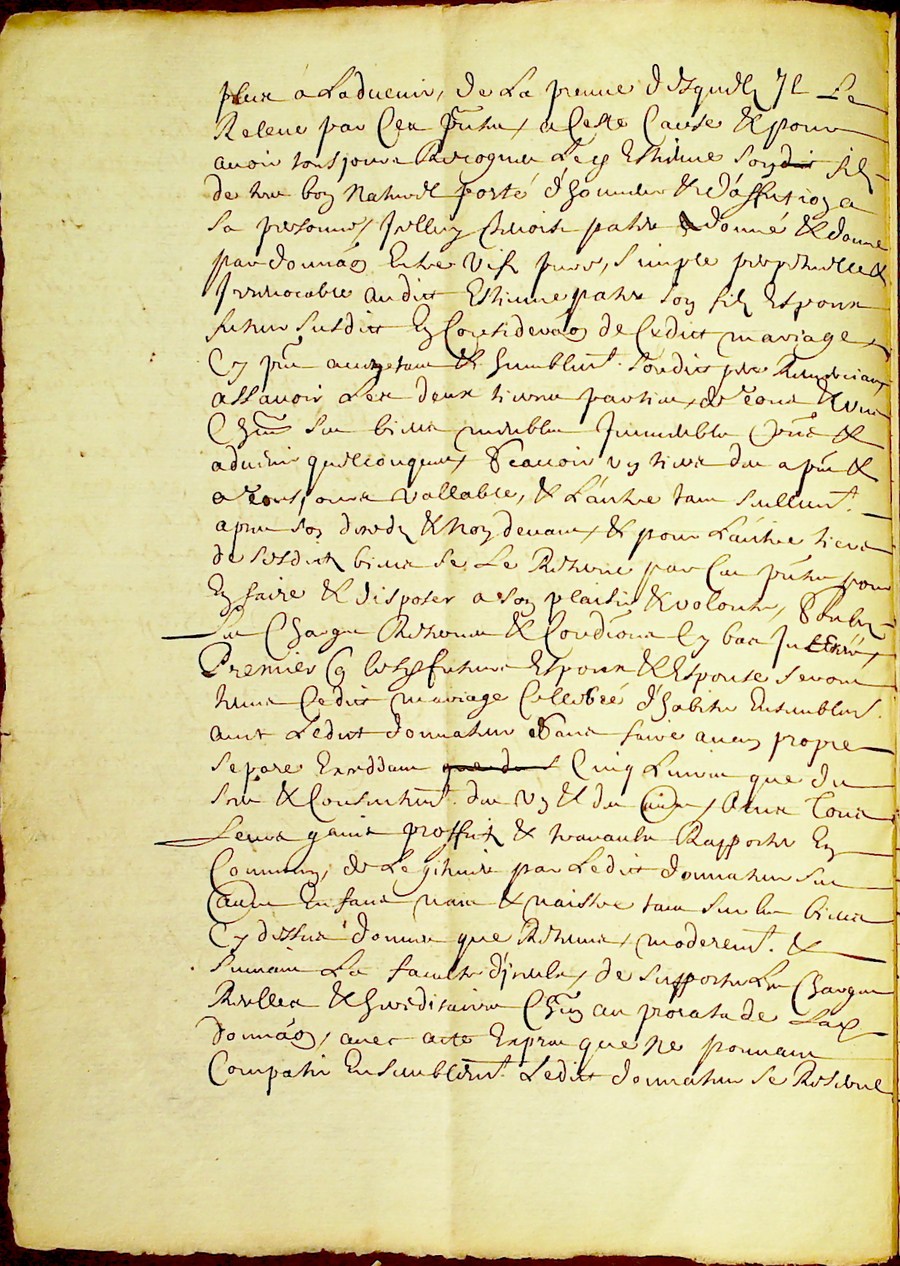 plus a Ladvenir, de La preuve desquelz Jl Le
Releve par Ces pntes, a Ceste Cause & pour
avoir tousjours Recogneu Ledt Estienne Son filz
de tres bon Naturel porté d'honneur & d'affection a
Sa personne, Jcelluy benoist patre donné & donne
par donnaon Entre Vifz pure, Simple perpetuelle &
Jrrevocable audict Estienne patre Son filz Espoux
futur Susdict En Consideraon de Cedict mariage
Cy pnt aceptant & humblemt. Sondict pere Remerciant
assavoir Les deux tierces parties, de tous & Uns
Chuns Ses biens meubles Jmmeubles pns &
advenir quelconques, Scavoir un tiers des a pnt &
a tousjours vallable, & L'autre tant Seullemt.
apres Son deceds & Non devant, & pour L'autre tiers
de Sesdicts biens Se Le Reserve par Ces pntes pour
En faire & disposer a Son plaisir & volonté, Soubz
Les Charges Reserves & Condions Cy bas Jnserées,
Premier q Lesds futurs Espoux & Espouse Seront
tenus Cedict mariage Cellebré d'habiter Ensemblemt.
avec Ledict donnateur Sans faire aucun propre
Separe Excedant Cinq Livres que du
Sceu & Consentemt. des Un & des autres, Ains Tous
Leurs gains proffitz & travaulx Rapporter En
Commun, de Legitimer par Ledict donnateur Ses
autres Enfans nais & naistre tant Sur les biens
Cy dessus donnes que Reserves, moderemt. &
Suivant La faculté d'iceulx, de Supporter Les Charges
Reelles & hereditaires Chun au prorata de La
donnaon, avec acte Expres que Ne pouvant
Compatir Ensemblemt. Ledict donnateur Se Reserve